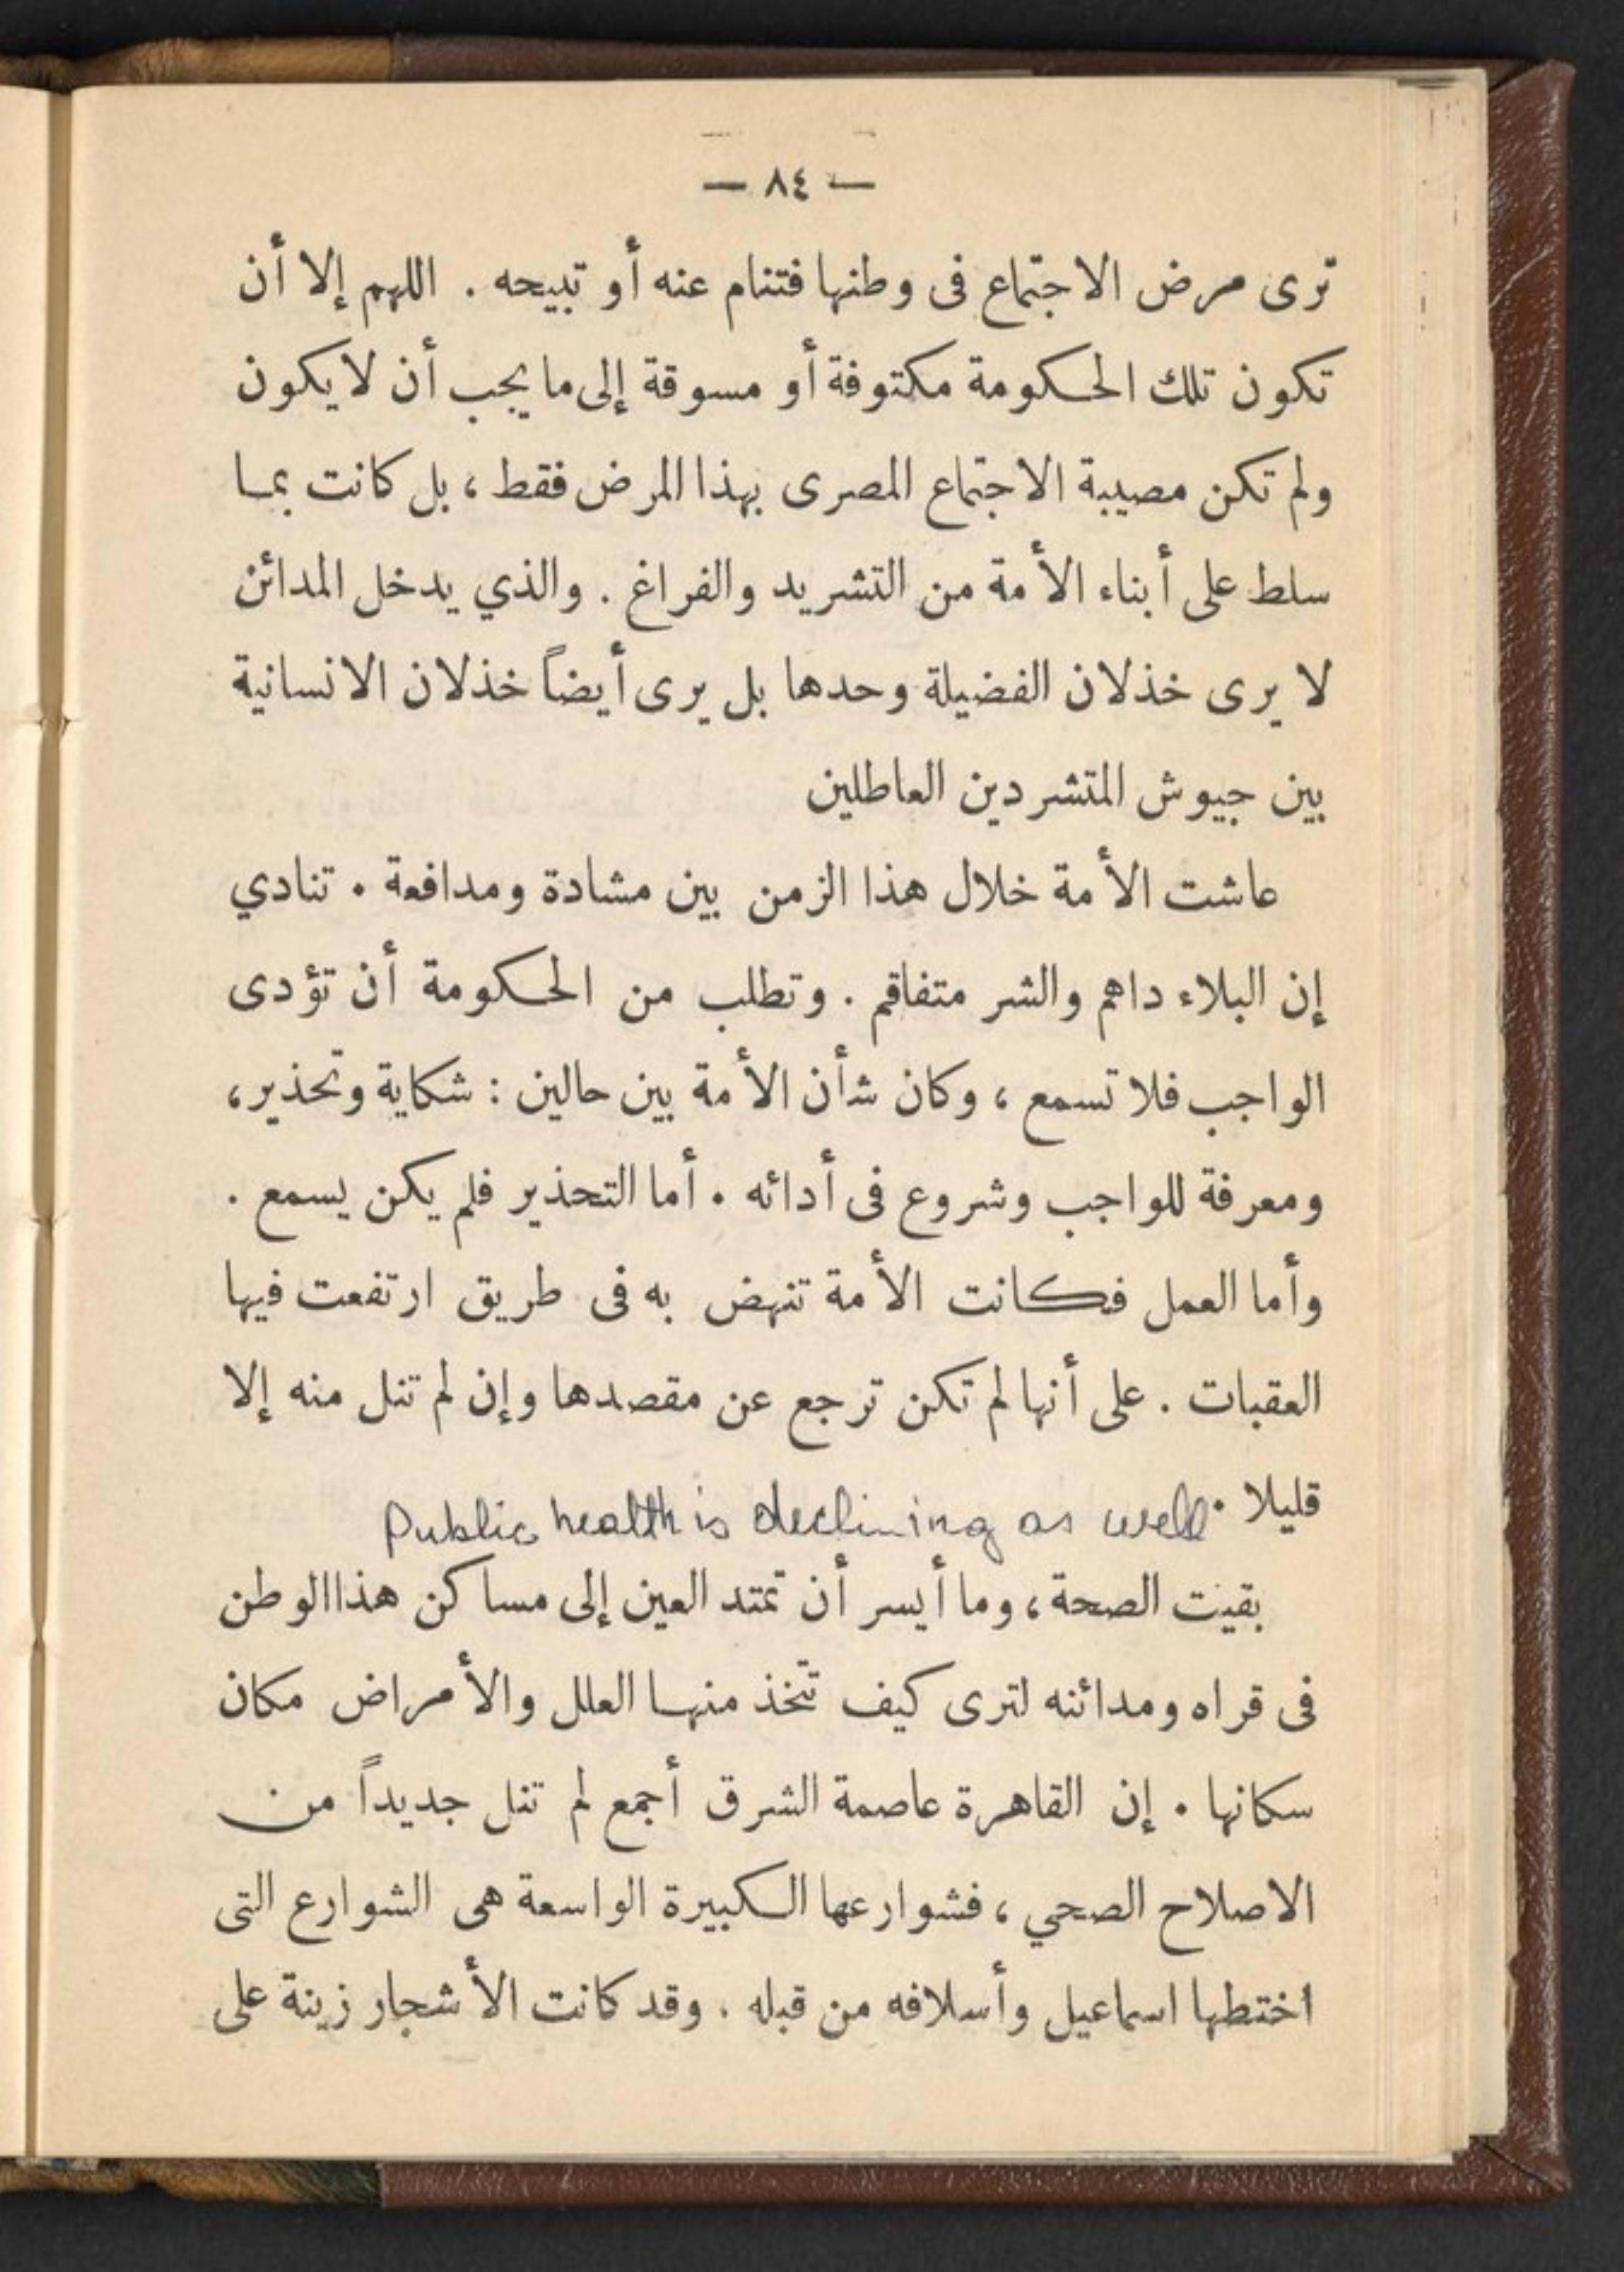 — ٨٤ —
ترى مرض الاجتماع فى وطنها فتنام عنه أو تبيحه . اللهم إلا أن
تكون تلك الحكومة مكتوفة أو مسوقة إلى ما يجب أن لا يكون
ولم تكن مصيبة الاجتماع المصرى بهذا المرض فقط ، بل كانت بما
سلط على أبناء الأمة من التشريد والفراغ . والذي يدخل المدائن
لا يرى خذلان الفضيلة وحدها بل يرى أيضاً خذلان الانسانية
بين جيوش المتشردين العاطلين
عاشت الأمة خلال هذا الزمن بين مشادة ومدافعة . تنادي
إن البلاء داهم والشر متفاقم . وتطلب من الحكومة أن تؤدى
الواجب فلا تسمع ، وكان شأن الأمة بين حالين : شكاية وتحذير ،
ومعرفة للواجب وشروع فى أدائه . أما التحذير فلم يكن يسمع .
وأما العمل فكانت الأمة تنهض به فى طريق ارتفعت فيها
العقبات . على أنها لم تكن ترجع عن مقصدها وإن لم تنل منه إلا
قليلا .
Public health is declining as well
بقيت الصحة ، وما أيسر أن تمتد العين إلى مساكن هذا الوطن
فى قراه ومدائنه لترى كيف تتخذ منها العلل والأمراض مكان
سكانها . إن القاهرة عاصمة الشرق أجمع لم تنل جديداً من
الاصلاح الصحي ، فشوارعها الكبيرة الواسعة هى الشوارع التى
اختطها اسماعيل وأسلافه من قبله . وقد كانت الأشجار زينة على